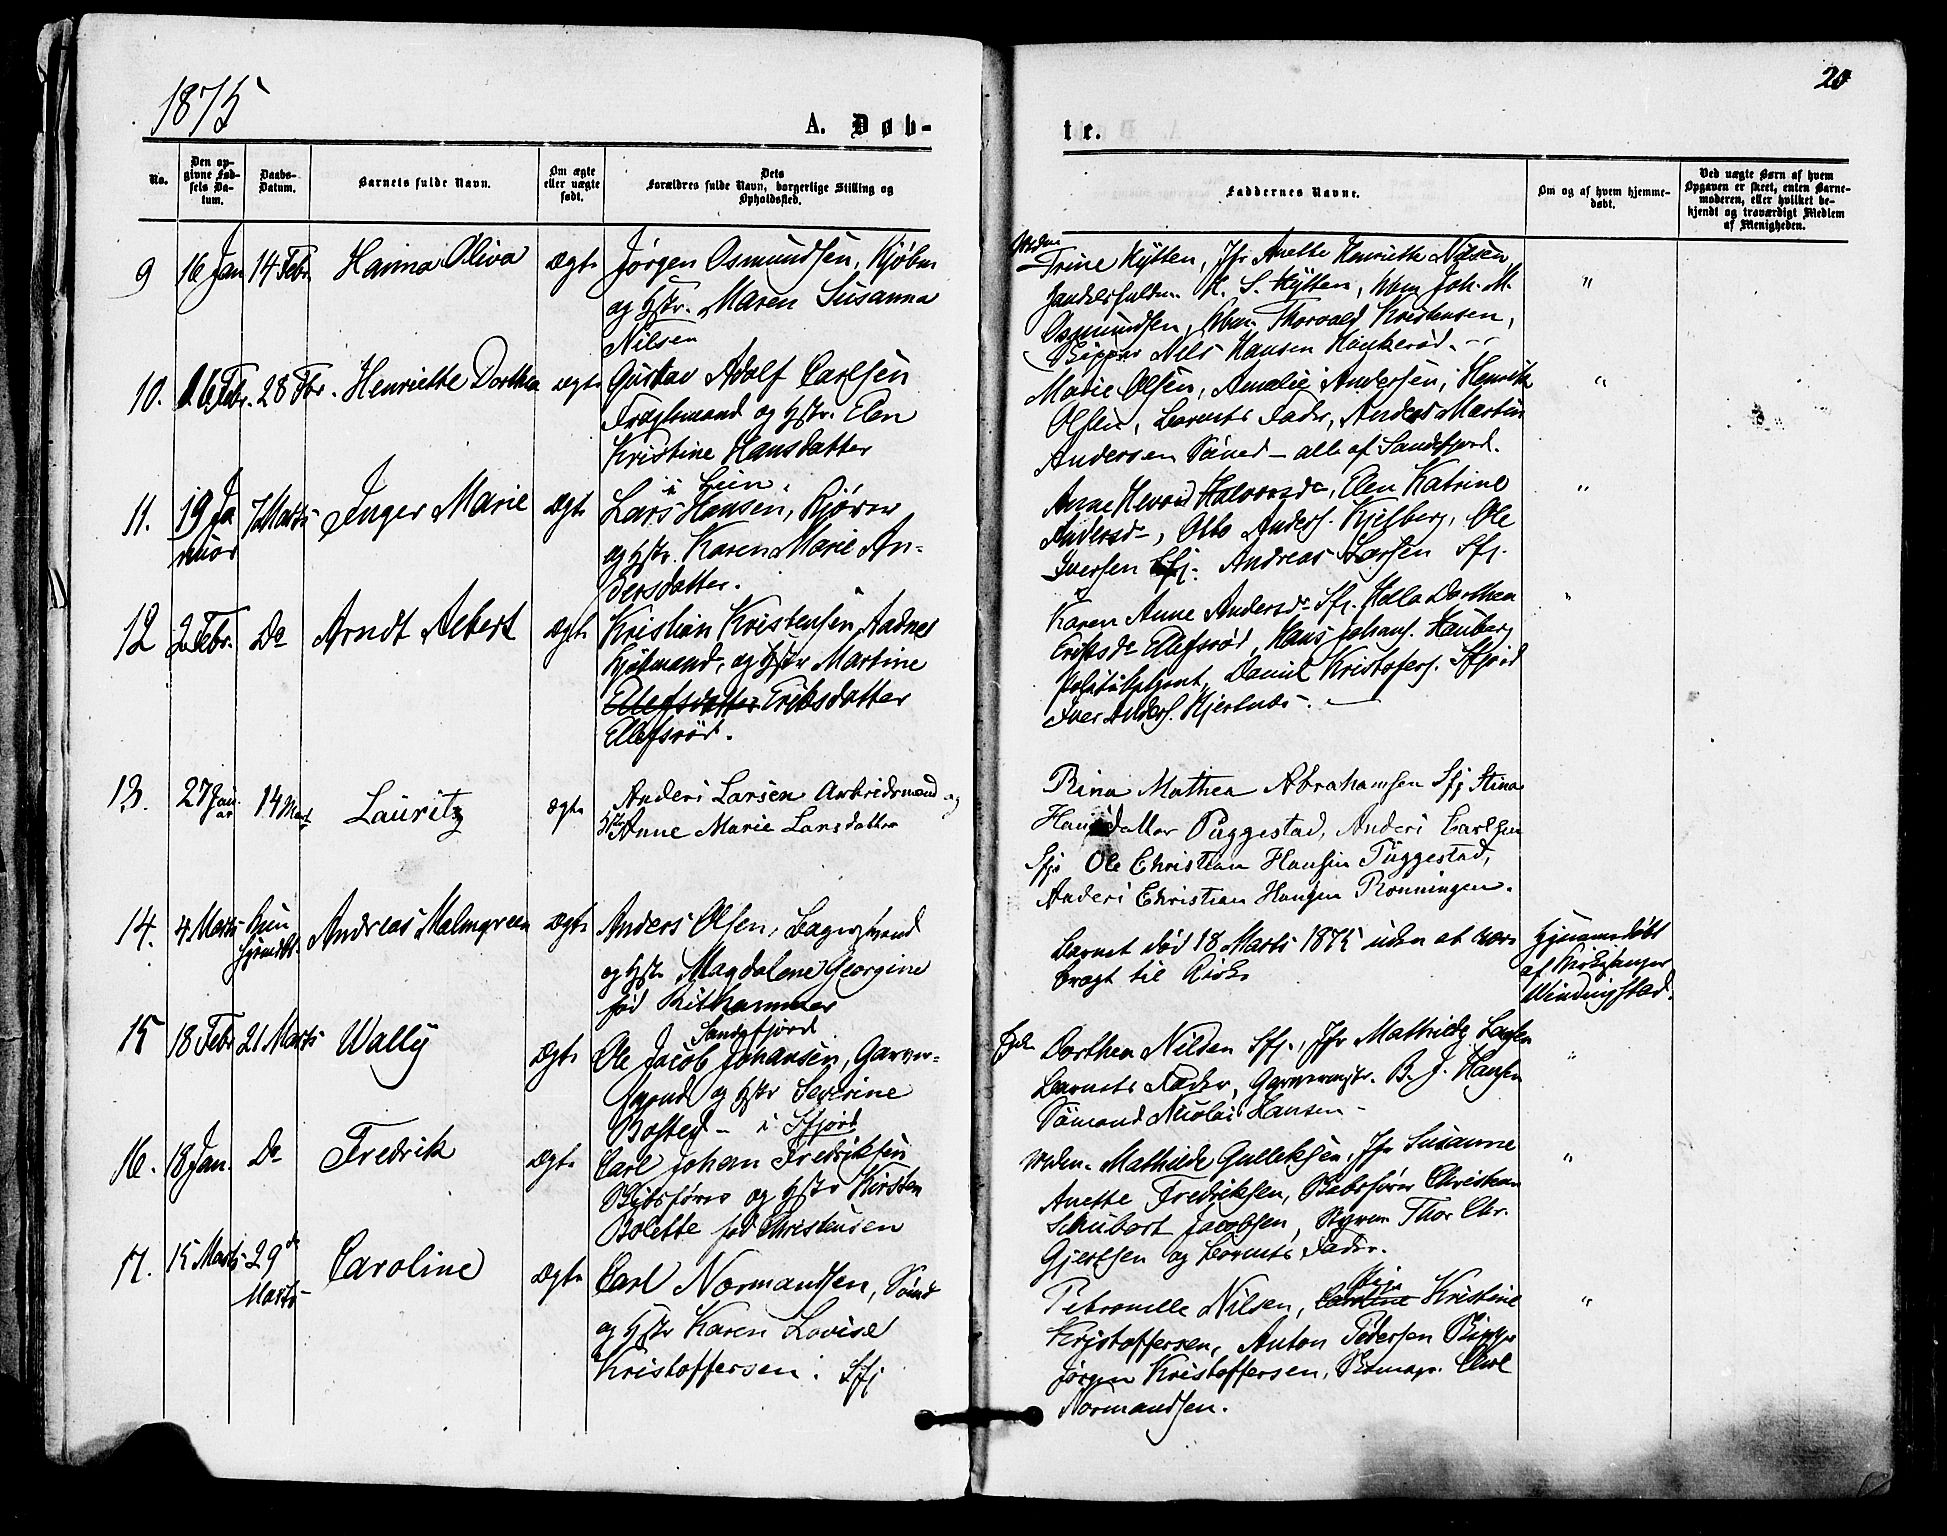 1875
20
A. Døb-
te.
No.
Den op-
givne Fød-
sels Da-
tum.
Daabs-
Datum.
Barnets fulde Navn.
Om ægte
eller uægte
født.
Dets
Forældres fulde Navn, borgerlige Stilling og
Opholdssted.
Faddernes Navne.
Om og af hvem hjemme-
døbt.
Ved uægte Børn af hvem
Opgaven er skeet, enten Barne-
moderen, eller hvilket be-
kjendt og troværdigt Medlem
af Menigheden.
9 16 Jan 14 Febr Hanna Oliva ægte Jørgen Osmundsen, Kjøbm
og Hstr. Maren Susanna
Nilsen
Trine Hytten, Jfr Anette Henriette Nilsen,
H. S. Hytten, Joh. M.
Osmundsen, Thorvald Kristensen,
Nils Hansen Haukerød.
10. 16 Febr. 28 Fbr. Henriette Dorthea ægte Gustav Adolf Carlsen
og Hstr. Elen
Kristine Hansdatter
i Lien.
Marie Olsen, Amalie Andersen, Henrik
Olsen, Barnets Fader, Anders Martin
Andersen Sömd - alle af Sandefjord.
11. 19 Ja
nuar 7 Marts Inger Marie ægte Lars Hansen, Kjører
og Hstr. Karen Marie An-
dersdatter.
Anne Halvorsdr, Elen Katrine
Andersdr, Otto Anders. Kjelberg, Ole
Iversen Sfj. Andreas Larsen Sfj.
12 2 Febr. Do Arndt Albert ægte Kristian Kristensen Aadnes
og Hstr Martine
Ellefsdatter Eriksdatter
Ellefsrød.
Karen Anne Andersdr Sfj. Hella Dorthea
Eriksdr Ellefsrød, Hans Johans. Hauberg
Politibetjent, Daniel Kristofers. Sfjord
Iver Anders. Kjertnæs.
13. 27 Jan
ar 14 Mart Lauritz ægte Anders Larsen Arbeidsmand og
Hstr Anne Marie Larsdatter
Rina Mathea Abrahamsen Sfj Stina
Hansdatter Puggestad, Anders Carlsen
Sfj. Ole Christian Hansen Puggestad,
Anders Christian Hansen Rønningen.
14. 4 Marts Kun
hjemdbt. Andreas Malmgreen ægte Anders Olsen, Bagersvend
og Hstr Magdalene Georgine
fød Rithammer
Sandefjord
Barnet død 18 Marts 1875 uden at være
bragt til Kirke
Hjemmedøbt
af Kirkesanger
Windingstad.
15 18 Febr 21 Marts Wally ægte Ole Jacob Johansen, Garver-
svend og Hstr Severine
Bosted - i Sfjord
Dorthea Nilsen Sfj., Jfr Mathilde
Barnets Fader, Garvermstr. B. J. Hansen
Sömand Nicolai Hansen -
16. 18 Jan. Do Fredrik ægte Carl Johan Fredriksen
Skibsfører og Hstr Kirsten
Bolette fød Christensen
Mathilde Gulliksen, Jfr Susanne
Anette Fredriksen, Skibsfører Christian
Schubart Jacobsen, Styrm Thor Chr.
Gjertsen og Barnets Fader.
17. 15 Marts 29de
Marts Caroline ægte Carl Normandsen, Sömd
og Hstr Karen Lovise
Kristoffersen. Sfj
Petronelle Nilsen, Caroline Kristine
Kristoffersen, Anton Pedersen
Jørgen Kristoffersen, Carl
Normandsen.